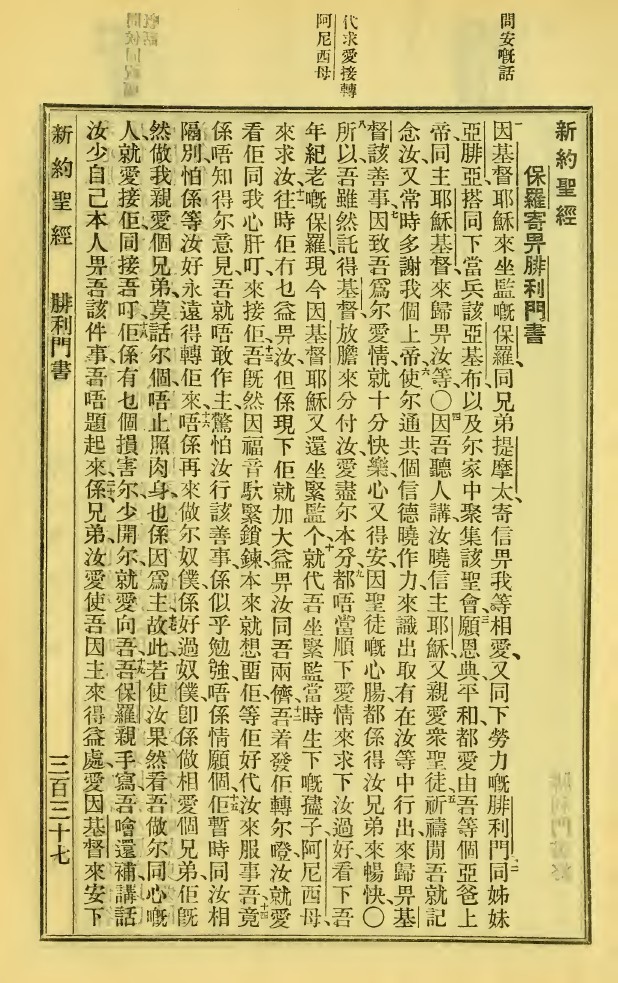 問安嘅話
代求愛接轉
阿尼西母
新約聖經
保羅寄畀腓利門書
一因基督耶穌來坐監嘅保羅、同兄弟提摩太、寄信畀我等相愛、又同下勞力嘅腓利門、二同姊妹
亞腓亞搭同下當兵該亞基布以及尔家中聚集該聖會、三願恩典平和都愛由吾等個亞爸上
帝同主耶穌基督來歸畀汝等〇四因吾聽人講汝曉信主耶穌又親愛衆聖徒五祈禱間吾就記
念汝又常時多謝我個上帝六使尔通共個信德曉作力來識出取有在汝等中行出來歸畀基
督該善事七因致吾爲尔愛情就十分快樂、心又得安因聖徒嘅心腸都係得汝兄弟來暢快〇
八所以吾雖然託得基督放膽來分付汝愛盡尔本分九都唔當順下愛情來求下汝過好看下吾
年紀老嘅保羅現今因基督耶穌又還坐緊監十个就代吾坐緊監當時生下嘅孻子阿尼西母、
來求汝十一往時佢冇乜益畀汝但係現下佢就加大益畀汝同吾兩儕十二吾着發佢轉尔嶝汝就愛
看佢同我心肝叮來接佢十三吾旣然因福音馱緊鎖鍊本來就想畱佢等佢好代汝來服事吾十四竟
係唔知得尔意見、吾就唔敢作主、驚怕汝行該善事係似乎勉強、唔係情願個十五佢暫時同汝相
隔別、怕係等汝好永遠得轉佢來十六唔係再來做尔奴僕係好過奴僕、卽係做相愛個兄弟佢旣
然做我親愛個兄弟莫話尔個、唔止照肉身也係因爲主故此十七若使汝果然看吾做尔同心嘅
人就愛接佢同接吾叮十八佢係有乜個損害尔、少開尔、就愛向吾十九吾保羅親手寫吾噲還補講話
汝少自己本人畀吾該件事、吾唔題起來二十係兄弟汝愛使吾因主來得益處愛因基督來安下
新約聖經
腓利門書
三百三十七